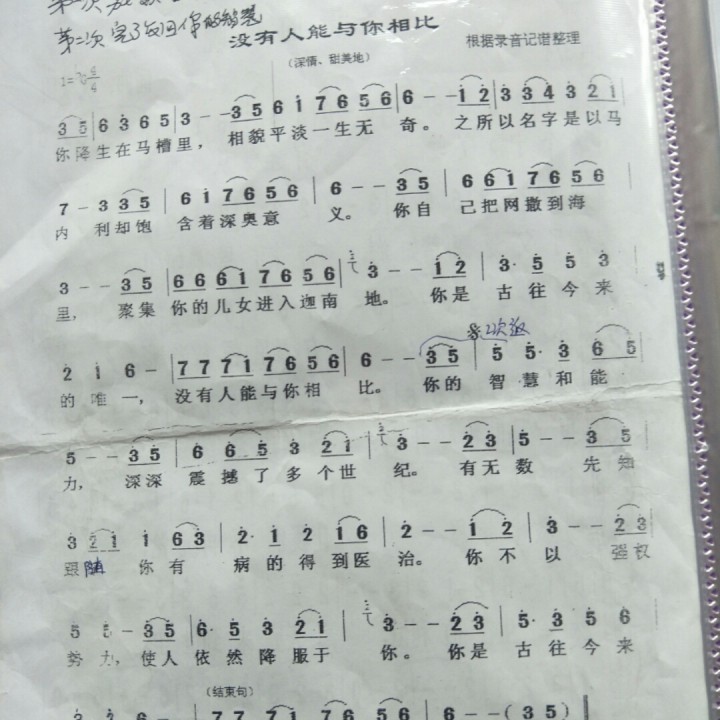 第二次完了每回你的智慧
没有人能与你相比
(深情、甜美地)
根据录音记谱整理
1= 6/4
3 5 | 6 3 6 5 | 3 - - 3 5 6 i 7 6 5 6 | 6 - - i 2 | 3 3 4 3 2 i
你降生在马槽里，相貌平淡一生无奇。之所以名字是以马
7 - 3 3 5 | 6 i 7 6 5 6 | 6 - - 3 5 | 6 6 i 7 6 5 6
内利却饱含着深奥意义。你自己把网撒到海
3 - - 3 5 | 6 6 6 i 7 6 5 6 | 3 - - i 2 | 3· 5 5 3
里，聚集你的儿女进入迦南地。你是古往今来
2次歌
2 i 6 - | 7 7 7 i 7 6 5 6 | 6 - - 3 5 | 5 5· 3 6 5
的唯一，没有人能与你相比。你的智慧和能
5 - - 3 5 | 6 6 5 3 2 i | 3 - - 2 3 | 5 - - 3 5
力，深深震撼了多个世纪。有无数先知
3 2 i i 6 3 | 2· i 2 i 6 | 2 - - i 2 | 3 - - 2 3
跟随你有病的得到医治。你不以强权
5 5 - 3 5 | 6· 5 3 2 i | 3 - - 2 3 | 5· 3 5 6
势力，使人依然降服于你。你是古往今来
(结束句)
2 - - - | 7 7 7 i 7 6 5 6 | 6 - - ( 3 5 ) ‖